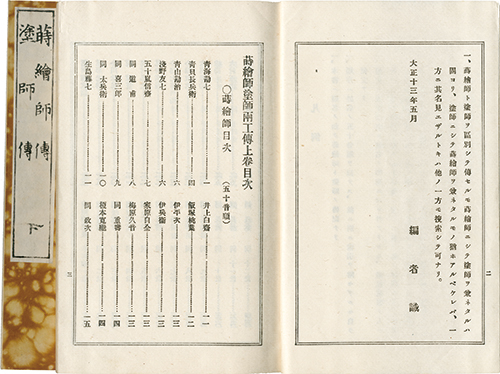 蒔繪師傳
塗師傳
下
一、蒔繪師ト塗師ヲ區別シテ傳セルモ蒔繪師ニシテ塗師ヲ兼ネタルハ
固ヨリ、塗師ニシテ蒔繪師ヲ兼ネタルモノ猶ホアルベケレバ、一
方ニ其名見エザルトキハ他ノ一方モ搜索シテ可ナリ。
大正十三年五月
編者識
二
蒔繪師塗師兩工傳上卷目次
〇蒔繪師目次(五十音順)
青海勘七 一
青貝長兵衛 二
青山勘治 六
淺野友七 六
五十嵐信齋 七
同道甫 八
同喜三郎 九
同太兵衛 一〇
生島藤七 一一
井上白齋 一一
飯塚桃葉 一二
伊平次 一二
伊兵衛 一三
家原自全 一三
梅原久音 一三
同重壽 一四
榎本寬織 一四
同政次 一五
三